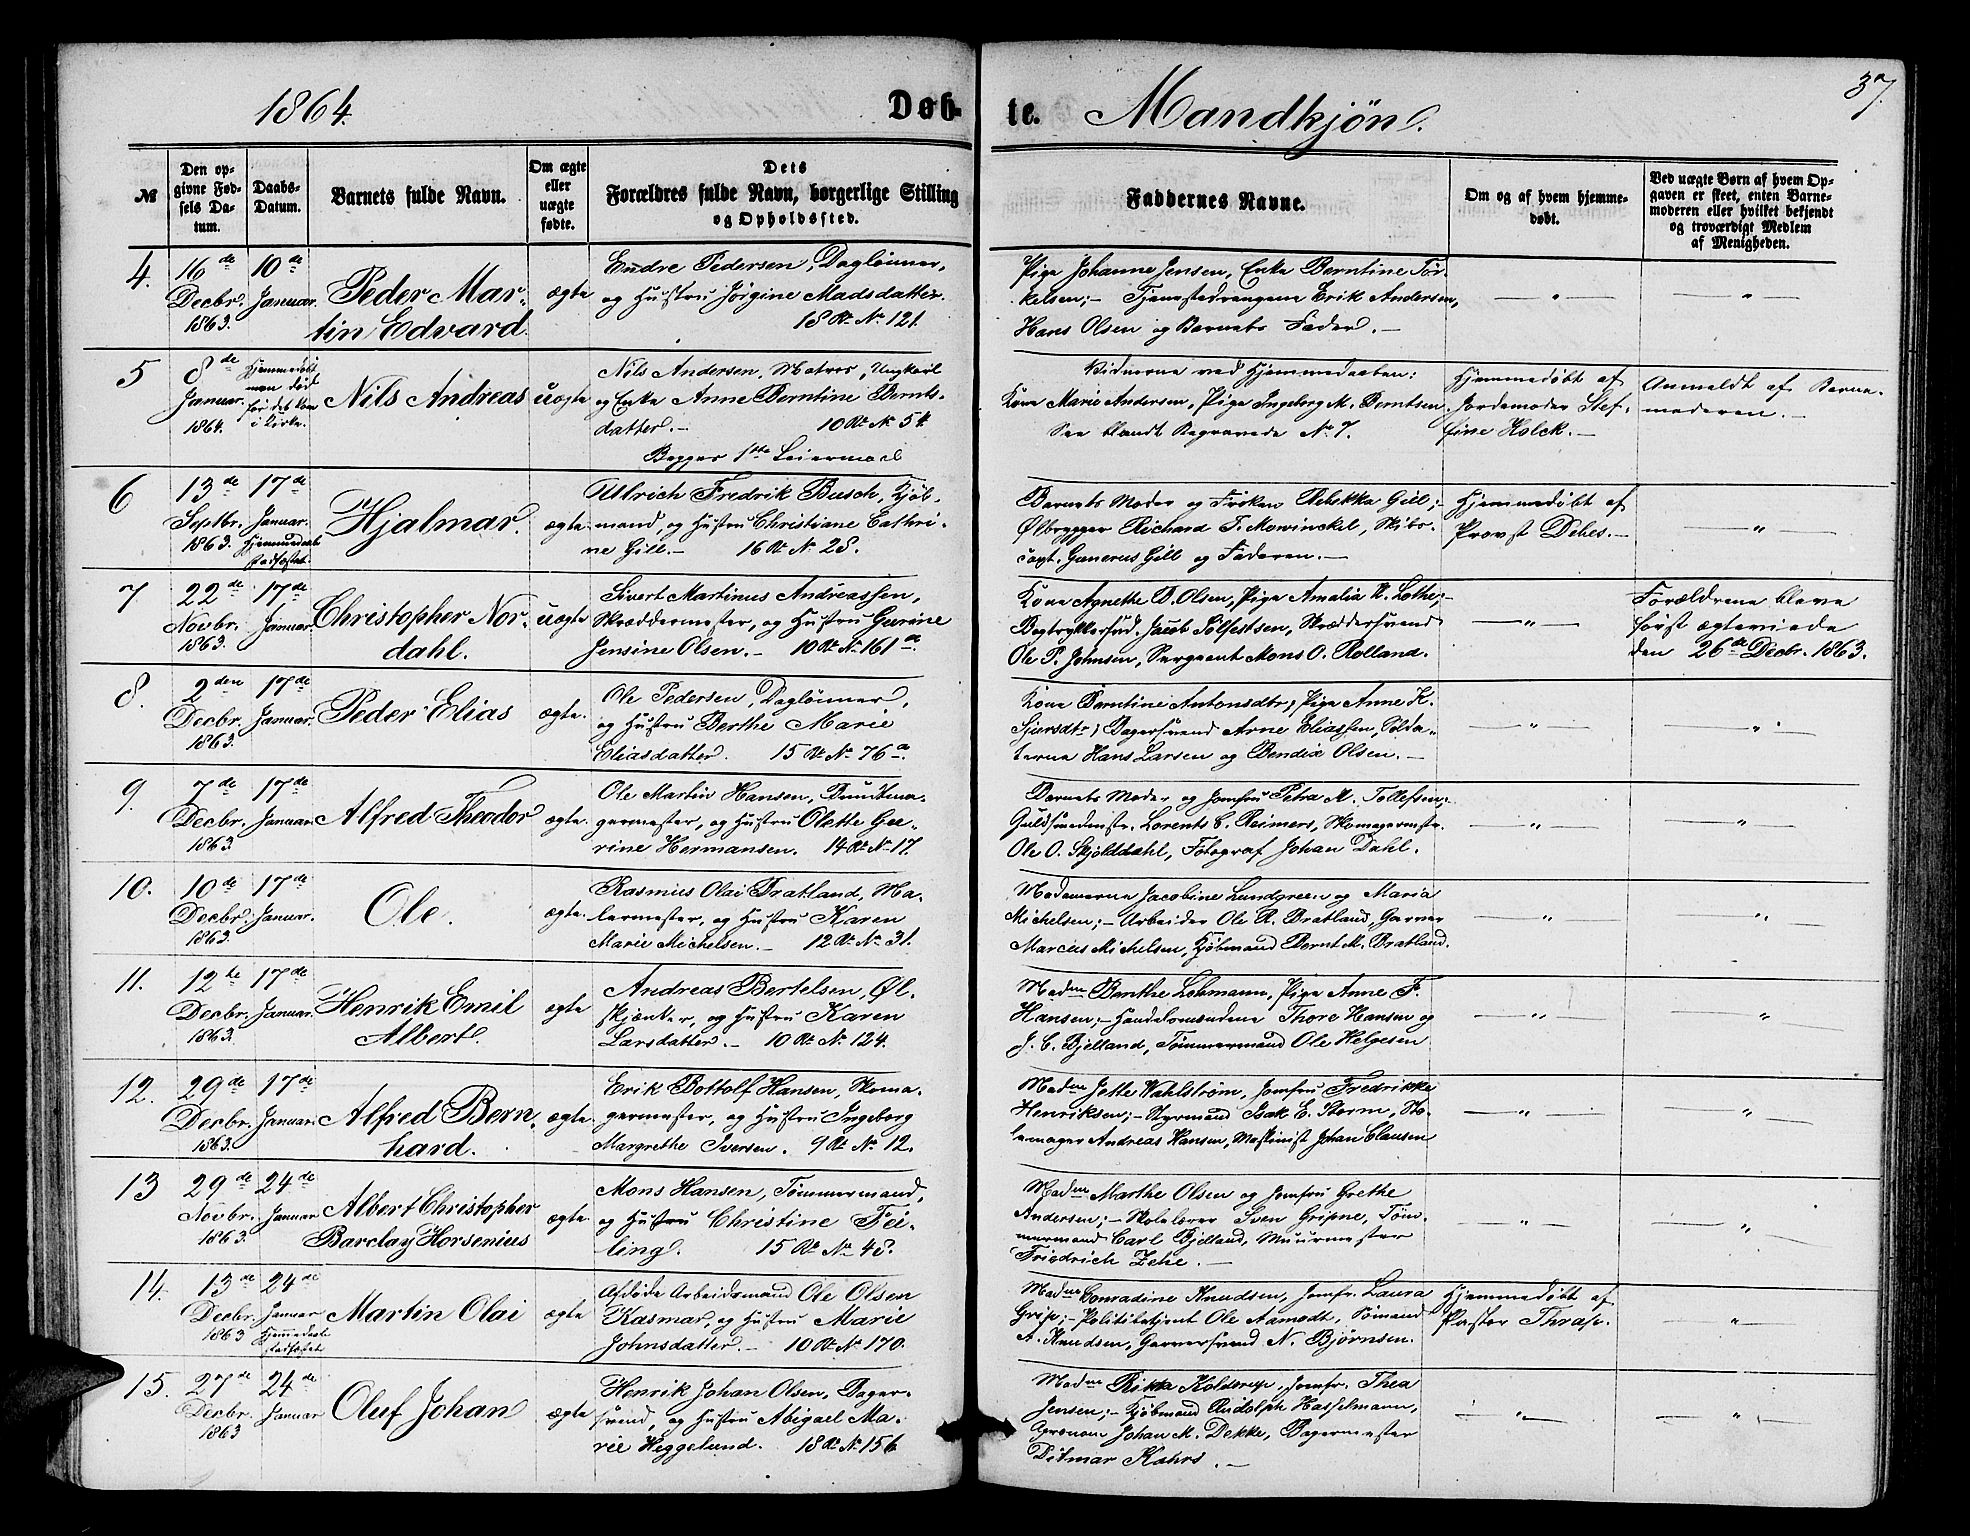 1864.
Døb-
te.
Mandkjøn.
37.
№
Den op-
givne Fød-
sels Da-
tum.
Daabs-
Datum.
Barnets fulde Navn.
Om ægte
eller
uægte
fødte.
Dets
Forældres fulde Navn, borgerlige Stilling
og Opholdssted.
Faddernes Navne.
Om og af hvem hjemme-
døbt.
Ved uægte Børn af hvem Op-
gaven er skeet, enten Barne-
moderen eller hvilket bekjendt
og troværdigt Medlem
af Menigheden.
4.
16de
Decbr.
1863.
10de
Januar.
Peder Mar-
tin Edvard.
ægte
Endre Pedersen, Daglønner,
og Hustru Jørgine Madsdatter.
18 Rt. No. 121.
Pige Johanne Jensen, Enke Berntine Tør-
kelsen;- Tjenestedrengene Erik Andersen,
Hans Olsen og Barnets Fader.-
— " —
— " —
5
8de
Januar.
1864.
Hjemmedøbt
men død
før det kom
i Kirke.
Nils Andreas
uægte
Nils Andersen, Matros, Ungkarl
og Enke Anne Berntine Bernts-
datter.- 10 Rt. No. 54.
Begges 1ste Leiermaal
Vidnerne ved Hjemmedaaben:
Kone Marie Andersen, Pige Ingeborg M. Berntsen.
See blandt Begravede No. 7.
Hjemmedøbt af
Jordemoder Stef-
fine Holck.-
Anmeldt af Barne-
moderen.-
6
13de
Septbr.
1863.
17de
Januar.
Hjemmedaab
stadfæstet.
Hjalmar.
ægte
Ulrich Fredrik Busch, Kjøb-
mand, og Hustru Christiane Cathri-
ne Gill.- 16 Rt. No. 28.
Barnets Moder og Frøken Rebekka Gill;-
Ølbrygger Richard T. Mowinckel, Skibs-
capt. Gunerus Gill og Faderen.-
Hjemmedøbt af
Provst Debes.-
— " —
7.
22de
Novbr.
1863.
17de
Januar.
Christopher Nor-
dahl.
uægte
Sivert Martinus Andreassen,
Skræddermester, og Hustru Gurine
Jensine Olsen.- 10 Rt. No. 161a.
Kone Agnethe B. Olsen, Pige Amalia K. Lothe;-
Bogtryklersud. Jacob Sølfestsen, Skræddersvend
Ole P. Johnsen, Sergeant Mons O. Rolland.
— " —
Forældrene bleve
først ægteviede
den 26de Decbr. 1863.
8.
2den
Decbr.
1863.
17de
Januar.
Peder Elias
ægte.
Ole Pedersen, Daglønner,
og Hustru Berthe Marie
Eliasdatter. 15 Rt. No. 76a.
Kone Berntine Antonsdtr; Pige Anne K.
Sjursdtr; Bagersvend Arne Eliassen, Solda-
terne Hans Larsen og Bendix Olsen.-
— " —
— " —
9.
7de
Decbr.
1863.
17de
Januar.
Alfred Theodor
ægte.
Ole Martin Hansen, Bundtma-
germester, og Hustru Olette Gu-
rine Hermansen. 14 Rt. No. 17.
Barnets Moder og Jomfru Petra M. Tollefsen;-
Guldsmedmstr. Lorents C. Reimers, Skomagermstr.
Ole O. Skjölddahl, Fotograf Johan Dahl.
— " —
— " —
10.
10de
Decbr.
1863.
17de
Januar.
Ole.
ægte.
Rasmus Olai Bratland, Ma-
lermester, og Hustru Karen
Marie Michelsen.- 12 Rt. No. 31.
Madamerne Jacobine Lundgreen og Maria
Michelsen;- Arbeider Ole R. Bratland, Garver
Marcus Michelsen, Kjøbmand Bernt M. Bratland.
— " —
— " —
11.
12te
Decbr.
1863.
17de
Januar.
Henrik Emil
Albert.
ægte
Andreas Bertelsen, Øl-
skjænker, og Hustru Karen
Larsdatter.- 10 Rt. No. 124.
Madme Benthe Lohmann, Pige Anne F.
Hansen;- Handelsmændene Thore Hansen og
J. C. Bjelland, Tømmermand Ole Helgesen
— " —
— " —
12.
29de
Decbr.
1863.
17de
Januar.
Alfred Bern-
hard.
ægte.
Erik Bottolf Hansen, Skoma-
germester, og Hustru Ingeborg
Margrethe Iversen. 9 Rt. No. 12.
Madme Jette Wahlstrøm, Jomfru Fredrikke
Henriksen;- Styrmand Isak E. Storm, Sto-
lemager Andreas Hansen, Maskinist Johan Clausen
— " —
— " —
13
29de
Novbr.
1863.
24de
Januar
Albert Christopher
Barclay Horsenius
ægte.
Mons Hansen, Tømmermand,
og Hustru Christine Fei-
ling. 15 Rt. No. 48.
Madme Marthe Olsen og Jomfru Grethe
Andersen;- Skolelærer Sven Gripne, Töm-
mermand Carl Bjelland, Muurmester
Friedrich Zehe.-
— " —
— " —
14.
13de
Decbr.
1863
24de
Januar
Hjemmedaab
stadfæstet
Martin Olai
ægte
Afdøde Arbeidsmand Ole Olsen
Kasmar, og Hustru Marie
Johnsdatter.- 10 Rt. No. 170.
Madme Conradine Knudsen, Jomfr. Laura
Grip;- Politibetjent Ole Aamodt, Sömand
A. Knudsen, Garversvend N. Bjørnsen.
Hjemmedøbt af
Pastor Thrap.
— " —
15.
27de
Decbr.
1863
24de
Januar
Oluf Johan
ægte
Henrik Johan Olsen, Bager-
svend, og Hustru Abigael Ma-
rie Wiggelund. 18 Rt. No. 156
Madme Rikka Kolderup, Jomfr. Thea
Jensen;- Kjøbmand Rudolph Hasselmann,
Agronom Johan M. Dekke, Bagermester
Ditmar Kahrs.-
— " —
— " —